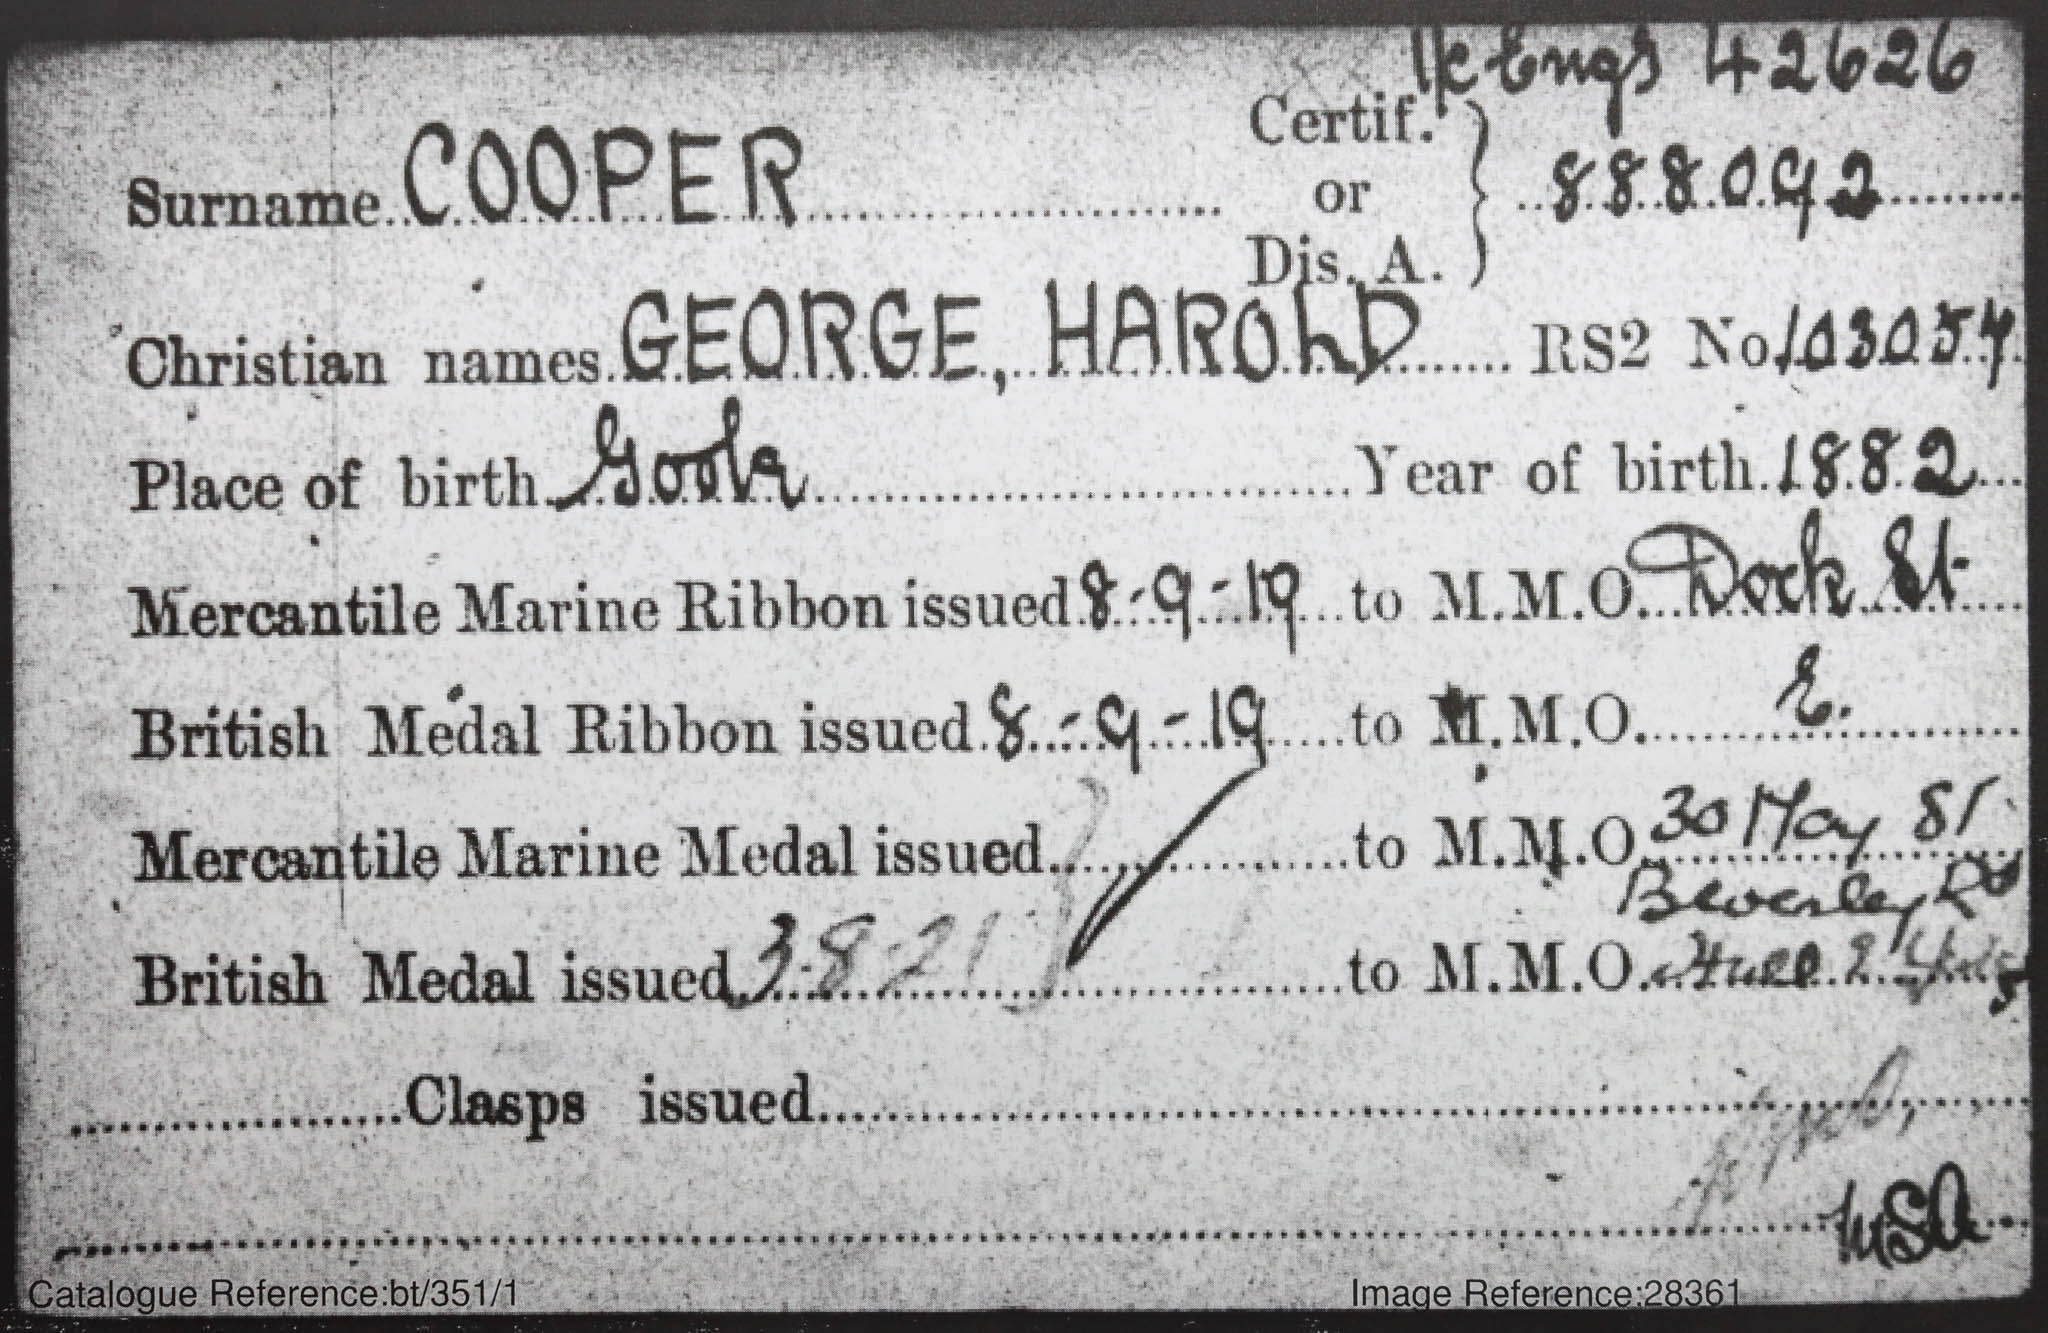 Engs 42626
Surname COOPER Certif. or Dis. A. } 888092
Christian names GEORGE, HAROLD RS2 No 103054
Place of birth Goole Year of birth 1882
Mercantile Marine Ribbon issued 8-9-19 to M.M.O. Dock St
British Medal Ribbon issued 8-9-19 to M.M.O. E.
Mercantile Marine Medal issued to M.M.O. 30 May St
Beverley Rd
British Medal issued 3.8.21 to M.M.O. Hull
Clasps issued
Catalogue Reference:bt/351/1 Image Reference:28361